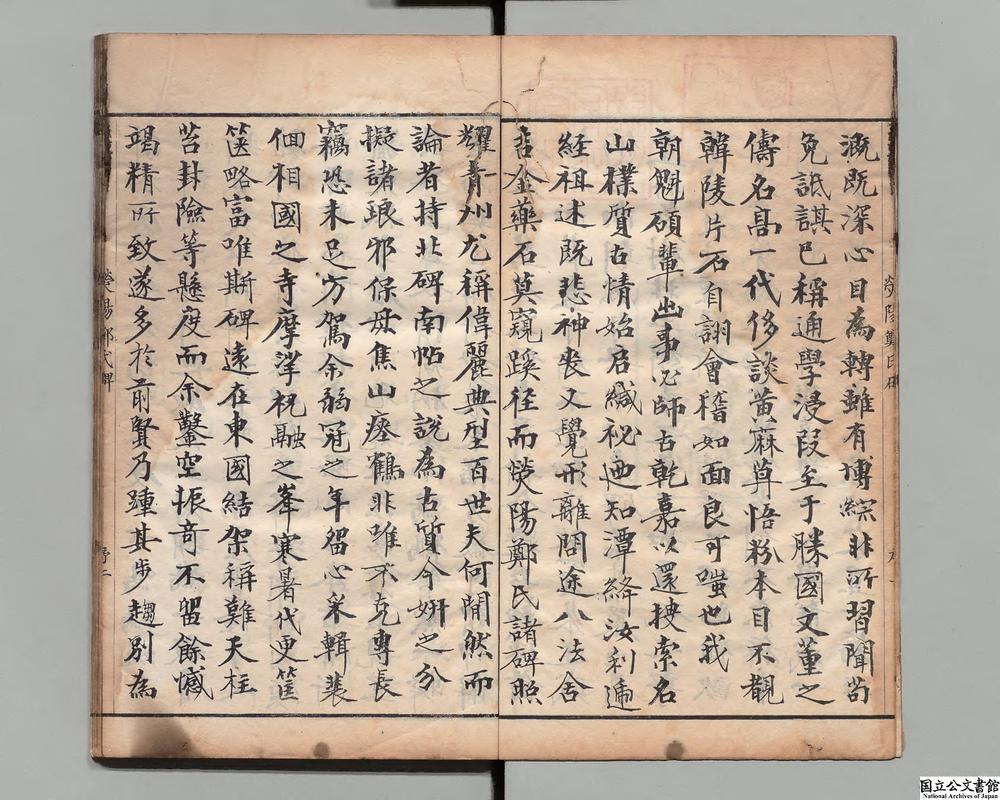 溉既深心目為轉雖有博綜非所習聞苟
免詆諆已稱通學浸叚至于勝國文董之
儔名高一代侈談黃麻草悟粉本目不覩
韓陵片石自詡會稽如面良可嗤也我
朝魁碩輩出事必師古乾嘉以還搜索名
山樸質古情始启緘祕迺知潭絳汝利遞
經祖述既悲神喪又覺形離問途八法舍
吉金藥石莫窺蹊径而熒陽鄭氏諸碑照
耀青州尤稱偉麗典型百世夫何閒然而
論者持北碑南帖之說為古質今妍之分
擬諸琅邪保母焦山瘞鶴非唯不克專長
竊恐未足方駕余弱冠之年留心采輯裴
佪相國之寺摩挲祝融之峯寒暑代更筐
篋略富唯斯碑遠在東國結架稱難天柱
苔封險等懸度而余鑿空振奇不留餘憾
竭精所致遂多於前賢乃踵其步趨別為
滎陽鄭氏碑
序一
滎陽鄭氏碑
序二
国立公文書館
National Archives of Japan